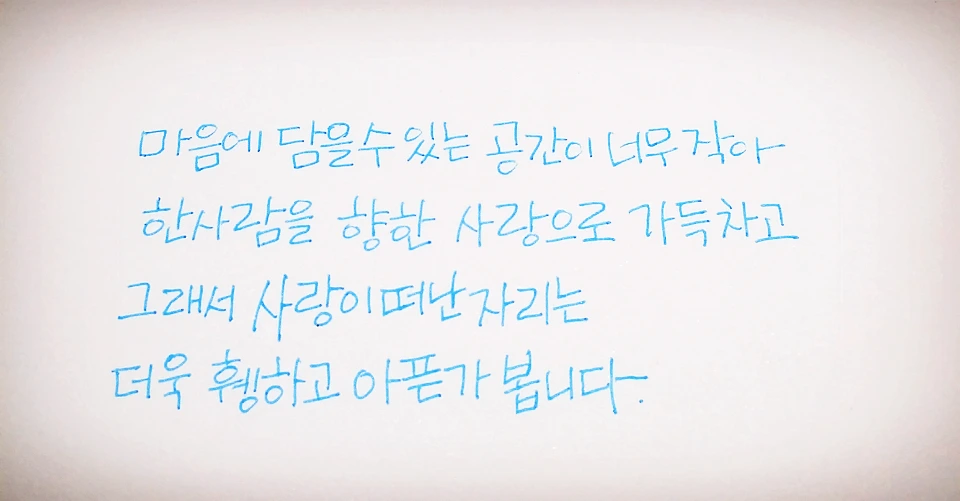 마음에 담을수 있는 공간이 너무 작아
한사람을 향한 사랑으로 가득차고
그래서 사랑이 떠난 자리는
더욱 휑하고 아픈가 봅니다.